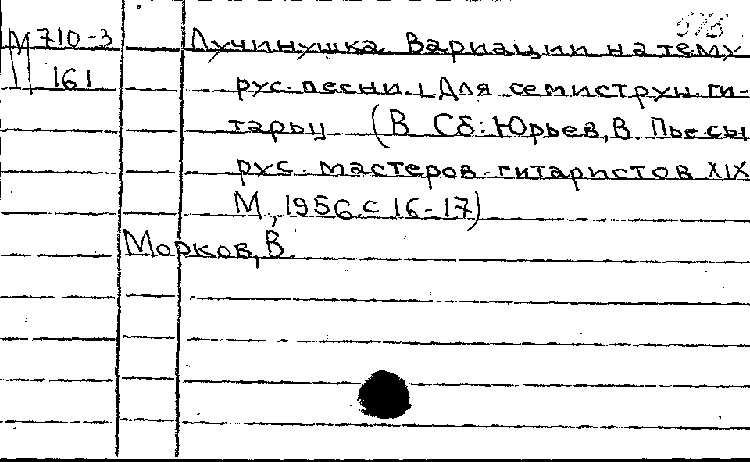 М 710-3
161
Лучинушка. Вариации на тему
рус. песни. Для семиструн. ги-
тары (В Сб: Юрьев, В. Пьесы
рус. мастеров-гитаристов XIX
М, 1956 с 16-17)
Морков, В.